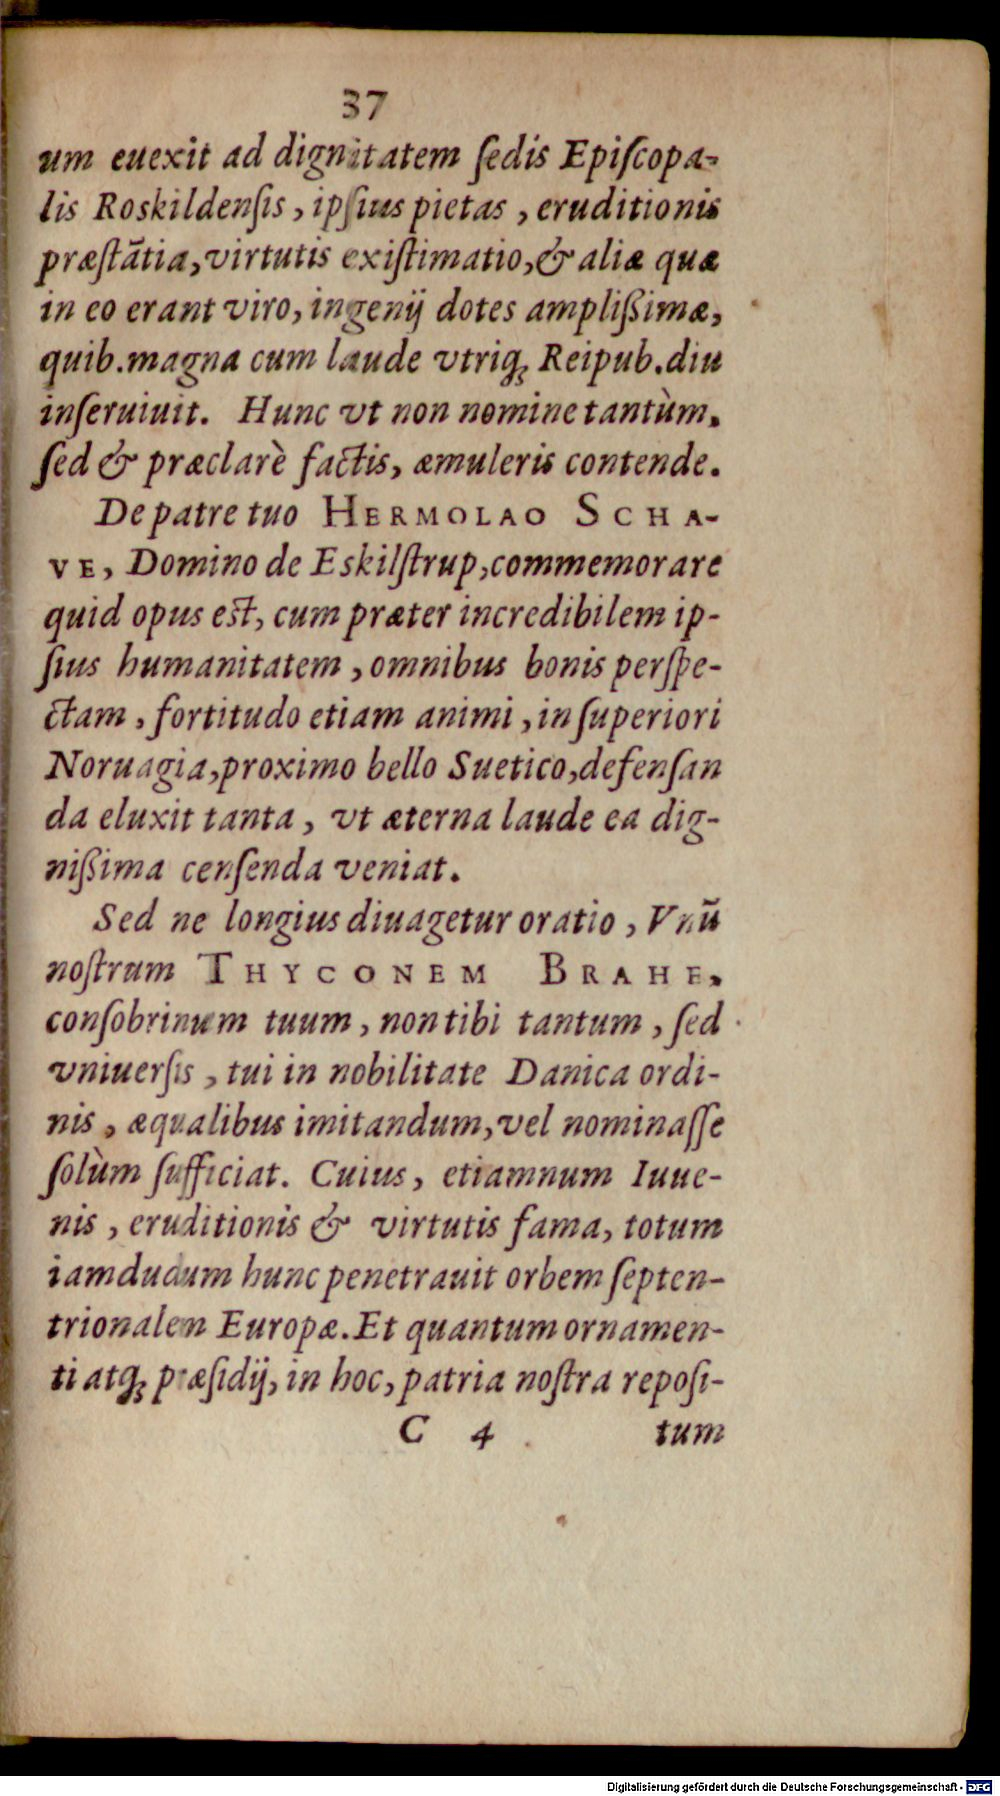 37
um euexit ad dignitatem ſedis Epiſcopa-
lis Roskildenſis, ipſius pietas, eruditionis
præſtãtia, virtutis exiſtimatio, & aliæ quæ
in eo erant viro, ingenij dotes ampliſsimæ,
quib. magna cum laude vtriq; Reipub. diu
inſeruiuit. Hunc vt non nomine tantùm,
ſed & præclarè factis, æmuleris contende.
De patre tuo HERMOLAO SCHA-
VE, Domino de Eskilſtrup, commemorare
quid opus eſt, cum præter incredibilem ip-
ſius humanitatem, omnibus bonis perſpe-
ctam, fortitudo etiam animi, in ſuperiori
Noruagia, proximo bello Suetico, defenſan
da eluxit tanta, vt æterna laude ea dig-
niſsima cenſenda veniat.
Sed ne longius diuagetur oratio, Vnũ
noſtrum THYCONEM BRAHE,
conſobrinum tuum, non tibi tantum, ſed
vniuerſis, tui in nobilitate Danica ordi-
nis, æqualibus imitandum, vel nominaſſe
ſolùm ſufficiat. Cuius, etiamnum Iuue-
nis, eruditionis & virtutis fama, totum
iamdudum hunc penetrauit orbem ſepten-
trionalem Europæ. Et quantum ornamen-
ti atq; præſidij, in hoc, patria noſtra repoſi-
C 4 tum
Digitalisierung gefördert durch die Deutsche Forschungsgemeinschaft - DFG